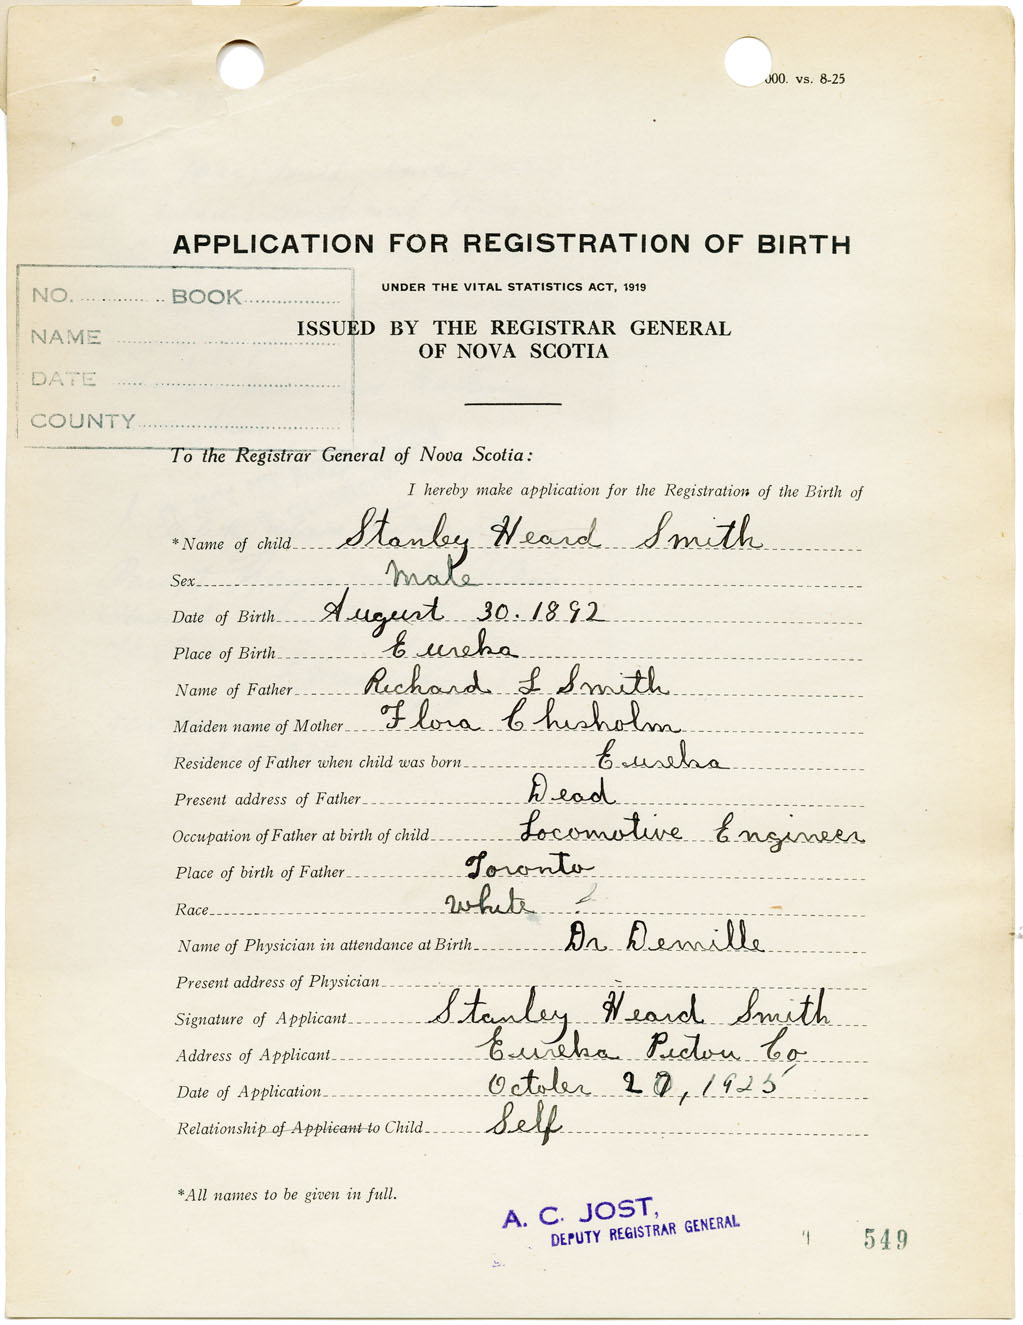 000. vs. 8-25
APPLICATION FOR REGISTRATION OF BIRTH
UNDER THE VITAL STATISTICS ACT, 1919
ISSUED BY THE REGISTRAR GENERAL
OF NOVA SCOTIA
NO. BOOK
NAME
DATE
COUNTY
To the Registrar General of Nova Scotia:
I hereby make application for the Registration of the Birth of
*Name of child Stanley Heard Smith
Sex Male
Date of Birth August 30. 1892
Place of Birth Eureka
Name of Father Richard L Smith
Maiden name of Mother Flora Chisholm
Residence of Father when child was born Eureka
Present address of Father Dead
Occupation of Father at birth of child Locomotive Engineer
Place of birth of Father Toronto
Race White
Name of Physician in attendance at Birth Dr Demille
Present address of Physician
Signature of Applicant Stanley Heard Smith
Address of Applicant Eureka Pictou Co
Date of Application October 27, 1925
Relationship of Applicant to Child Self
*All names to be given in full.
A. C. JOST,
DEPUTY REGISTRAR GENERAL
549